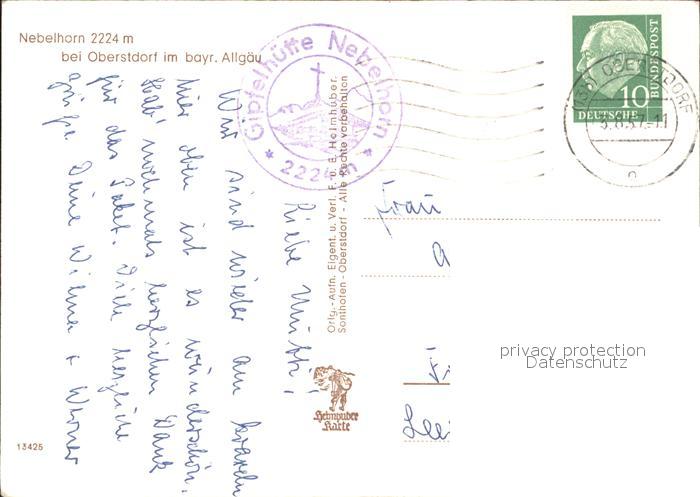 Nebelhorn 2224 m
bei Oberstdorf im bayr. Allgäu
Gipfelhütte Nebelhorn
* 2224 m *
BUNDESPOST
10
DEUTSCHE
(13b) OBERSTDORF
5.8.57.-11
Liebe Mutti!
Wir sind wieder am kraxeln
hier oben ist es wunderschön.
Hab' nochmals herzlichen Dank
für das Paket. Viele herzliche
Grüße Deine Wilma + Werner
Orig.-Aufn. Eigent. u. Verl. F. u. E. Heimhuber.
Sonthofen - Oberstdorf - Alle Rechte vorbehalten
Frau
privacy protection
Datenschutz
Heimhuber
Karte
13425